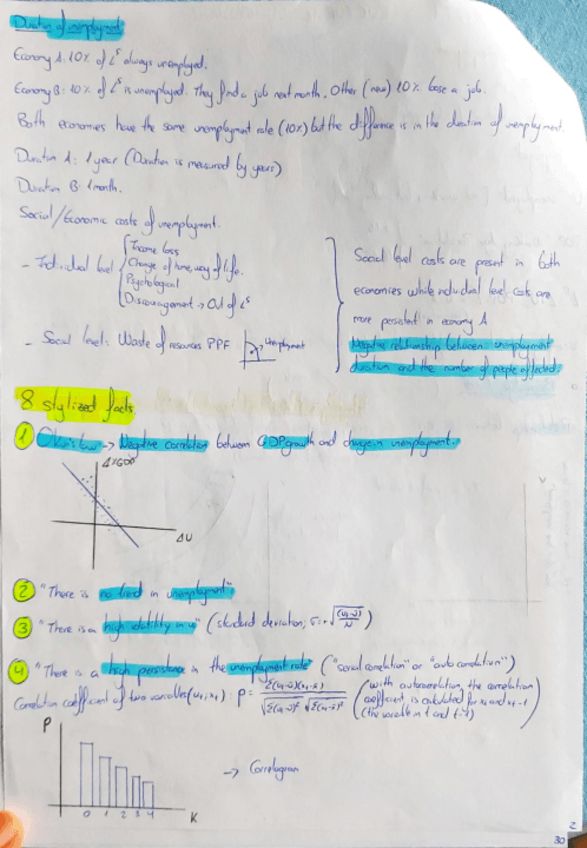 Duration of unemployment
Economy A: 10% of Lˢ always unemployed.
Economy B: 10% of Lˢ is unemployed. They find a job next month. Other (new) 10% lose a job.
Both economies have the same unemployment rate (10%) but the difference is in the duration of unemployment.
Duration A: 1 year (Duration is measured by years)
Duration B: 1 month.
Social/Economic costs of unemployment.
- Individual level
Income loss
Change of home, way of life.
Psychological
Discouragement → Out of Lˢ
- Social level: Waste of resources PPF
Unemployment
Social level costs are present in both
economies while individual level costs are
more persistent in economy A
Negative relationship between unemployment
duration and the number of people affected.
8 stylized facts
1 Okun's law → Negative correlation between GDP growth and change in unemployment.
Δ%GDP
ΔU
2 "There is no trend in unemployment"
3 "There is a high volatility in u" (standard deviation;
4 "There is a high persistence in the unemployment rate" ("serial correlation" or "auto correlation")
Correlation coefficient of two variables
(with autocorrelation, the correlation
coefficient is calculated for
(the variable in t and t-1)
P
0 1 2 3 4
K
→ Correlogram
2
30